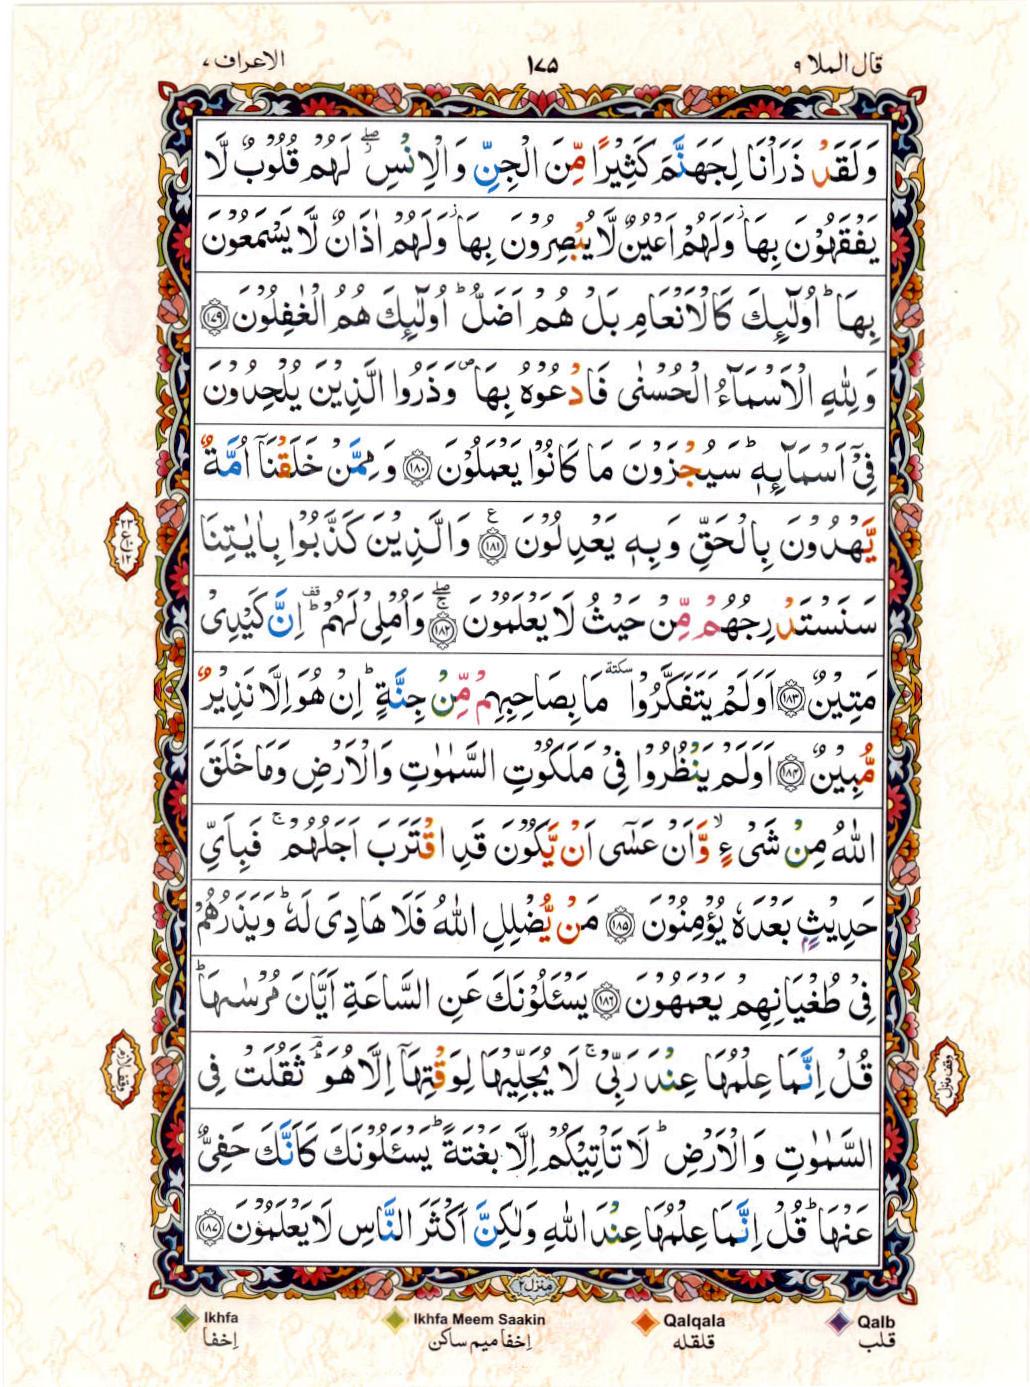 الاعراف ٧
١٧٥
قال الملا ٩
وَلَقَدْ ذَرَاْنَا لِجَهَنَّمَ كَثِيْرًا مِّنَ الْجِنِّ وَالْاِنْسِ ۖ لَهُمْ قُلُوْبٌ لَّا
يَفْقَهُوْنَ بِهَا ؗ وَلَهُمْ اَعْيُنٌ لَّا يُبْصِرُوْنَ بِهَا ؗ وَلَهُمْ اٰذَانٌ لَّا يَسْمَعُوْنَ
بِهَا ؕ اُولٰٓئِكَ كَالْاَنْعَامِ بَلْ هُمْ اَضَلُّ ؕ اُولٰٓئِكَ هُمُ الْغٰفِلُوْنَ ﴿١٧٩﴾
وَلِلّٰهِ الْاَسْمَآءُ الْحُسْنٰى فَادْعُوْهُ بِهَا ۪ وَذَرُوا الَّذِيْنَ يُلْحِدُوْنَ
فِيْٓ اَسْمَآئِهٖ ؕ سَيُجْزَوْنَ مَا كَانُوْا يَعْمَلُوْنَ ﴿١٨٠﴾ وَمِمَّنْ خَلَقْنَآ اُمَّةٌ
يَّهْدُوْنَ بِالْحَقِّ وَبِهٖ يَعْدِلُوْنَ ﴿١٨١﴾ ع وَالَّذِيْنَ كَذَّبُوْا بِاٰيٰتِنَا
سَنَسْتَدْرِجُهُمْ مِّنْ حَيْثُ لَا يَعْلَمُوْنَ ﴿١٨٢﴾ ۖۚ وَاُمْلِيْ لَهُمْ ؕ قف اِنَّ كَيْدِيْ
مَتِيْنٌ ﴿١٨٣﴾ اَوَلَمْ يَتَفَكَّرُوْا سكتة مَا بِصَاحِبِهِمْ مِّنْ جِنَّةٍ ؕ اِنْ هُوَ اِلَّا نَذِيْرٌ
مُّبِيْنٌ ﴿١٨٤﴾ اَوَلَمْ يَنْظُرُوْا فِيْ مَلَكُوْتِ السَّمٰوٰتِ وَالْاَرْضِ وَمَا خَلَقَ
اللّٰهُ مِنْ شَيْءٍ ۙ وَّاَنْ عَسٰٓى اَنْ يَّكُوْنَ قَدِ اقْتَرَبَ اَجَلُهُمْ ۚ فَبِاَيِّ
حَدِيْثٍۭ بَعْدَهٗ يُؤْمِنُوْنَ ﴿١٨٥﴾ مَنْ يُّضْلِلِ اللّٰهُ فَلَا هَادِيَ لَهٗ ؕ وَيَذَرُهُمْ
فِيْ طُغْيَانِهِمْ يَعْمَهُوْنَ ﴿١٨٦﴾ يَسْئَلُوْنَكَ عَنِ السَّاعَةِ اَيَّانَ مُرْسٰىهَا ؕ
قُلْ اِنَّمَا عِلْمُهَا عِنْدَ رَبِّيْ ۚ لَا يُجَلِّيْهَا لِوَقْتِهَآ اِلَّا هُوَ ؕۘ ثَقُلَتْ فِي
السَّمٰوٰتِ وَالْاَرْضِ ؕ لَا تَاْتِيْكُمْ اِلَّا بَغْتَةً ؕ يَسْئَلُوْنَكَ كَاَنَّكَ حَفِيٌّ
عَنْهَا ؕ قُلْ اِنَّمَا عِلْمُهَا عِنْدَ اللّٰهِ وَلٰكِنَّ اَكْثَرَ النَّاسِ لَا يَعْلَمُوْنَ ﴿١٨٧﴾
وقف لازم
وقف منزل
منزل ٢
Ikhfa
اِخفا
Ikhfa Meem Saakin
اِخفا میم ساکن
Qalqala
قلقله
Qalb
قلب